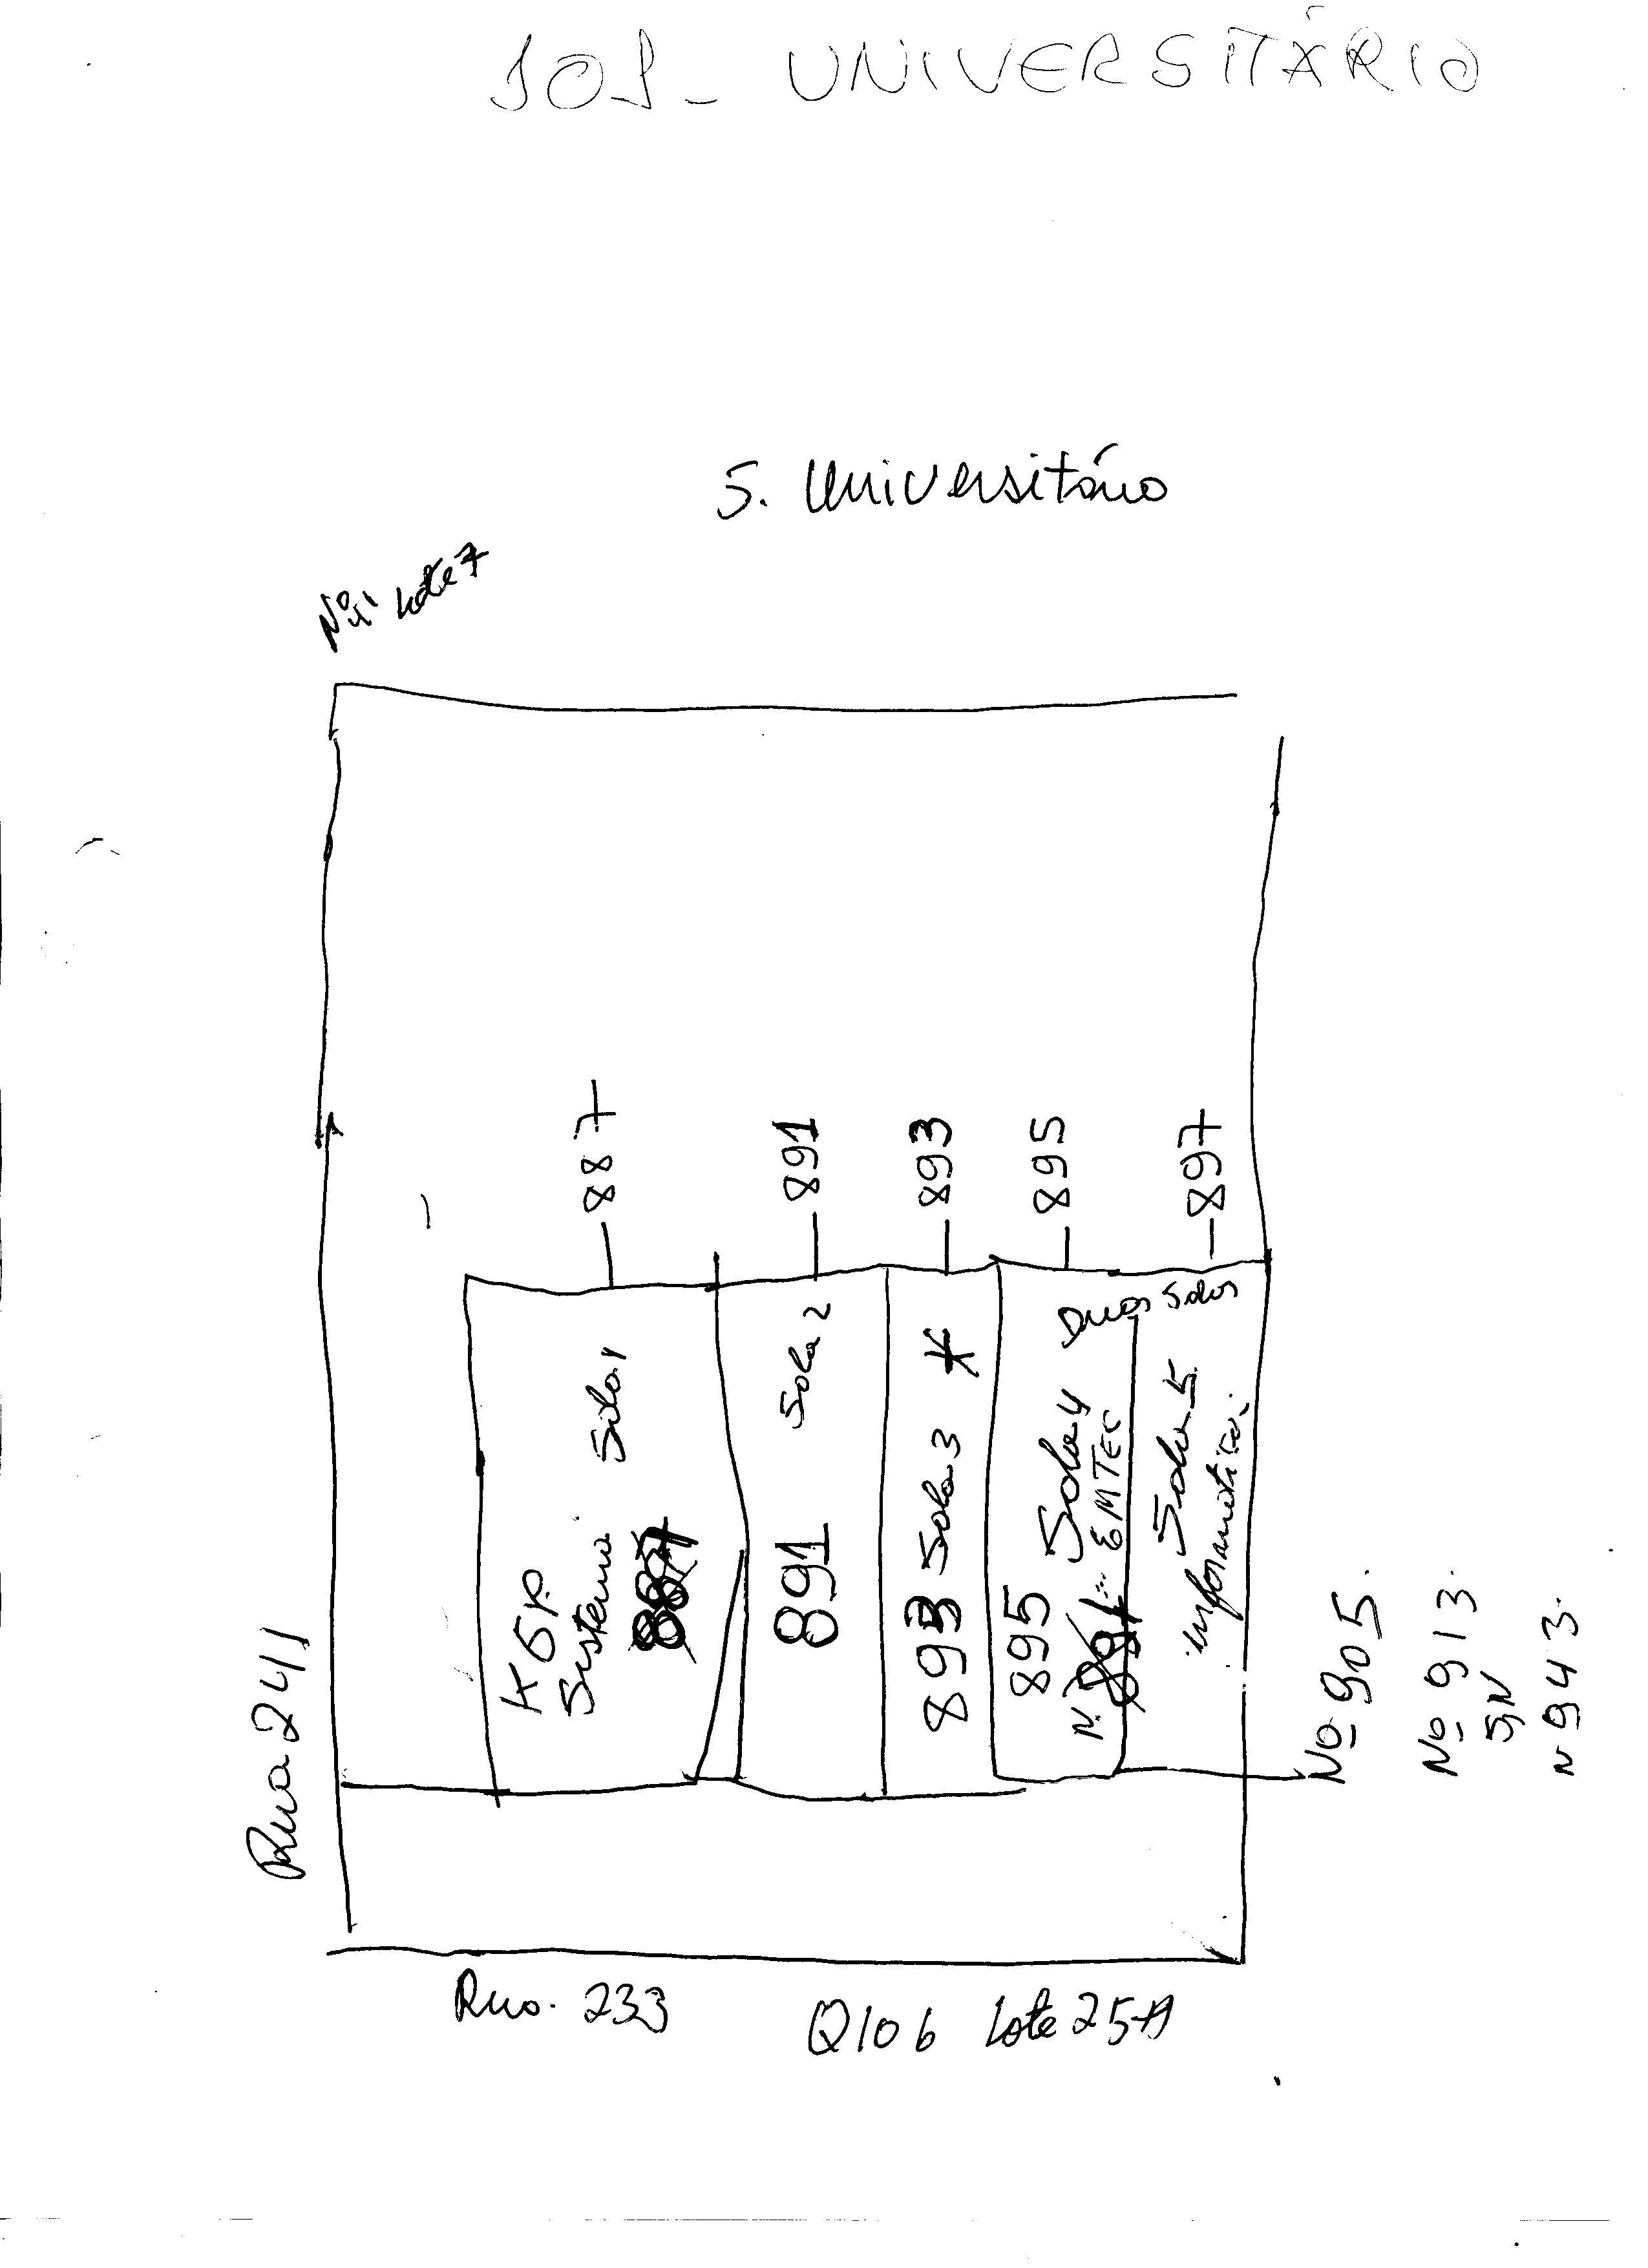 101- UNIVERSITÁRIO
S. Universitário
Lote 7
887
891
893
895
897
KGR
Sistema Sala 1
887
891 Sala 2
893 Sala 3 *
895 Sala 4 Duas Salas
N. EMTEC
Sala 5
informática.
Rua 241
Nº 905.
Nº 913.
S/N
N 943.
Rua. 233 Q106 Lote 25-A